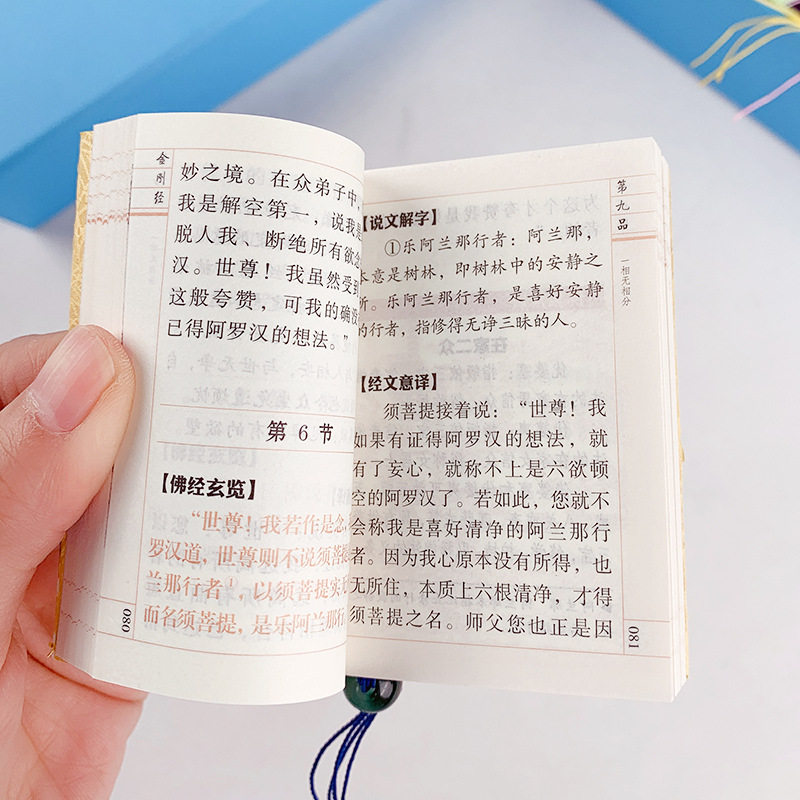 金刚经
妙之境。在众弟子中，
我是解空第一，说我是
脱人我、断绝所有欲念
汉。世尊！我虽然受到
这般夸赞，可我的确没
已得阿罗汉的想法。”
第 6 节
【佛经玄览】
“世尊！我若作是念
罗汉道，世尊则不说须菩
兰那行者①，以须菩提实
而名须菩提，是乐阿兰那行
080
第九品
一相无相分
【说文解字】
①乐阿兰那行者：阿兰那，
本意是树林，即树林中的安静之
所。乐阿兰那行者，是喜好安静
的行者，指修得无诤三昧的人。
【经文意译】
须菩提接着说：“世尊！我
如果有证得阿罗汉的想法，就
有了妄心，就称不上是六欲顿
空的阿罗汉了。若如此，您就不
会称我是喜好清净的阿兰那行
者。因为我心原本没有所得，也
无所住，本质上六根清净，才得
须菩提之名。师父您也正是因
081